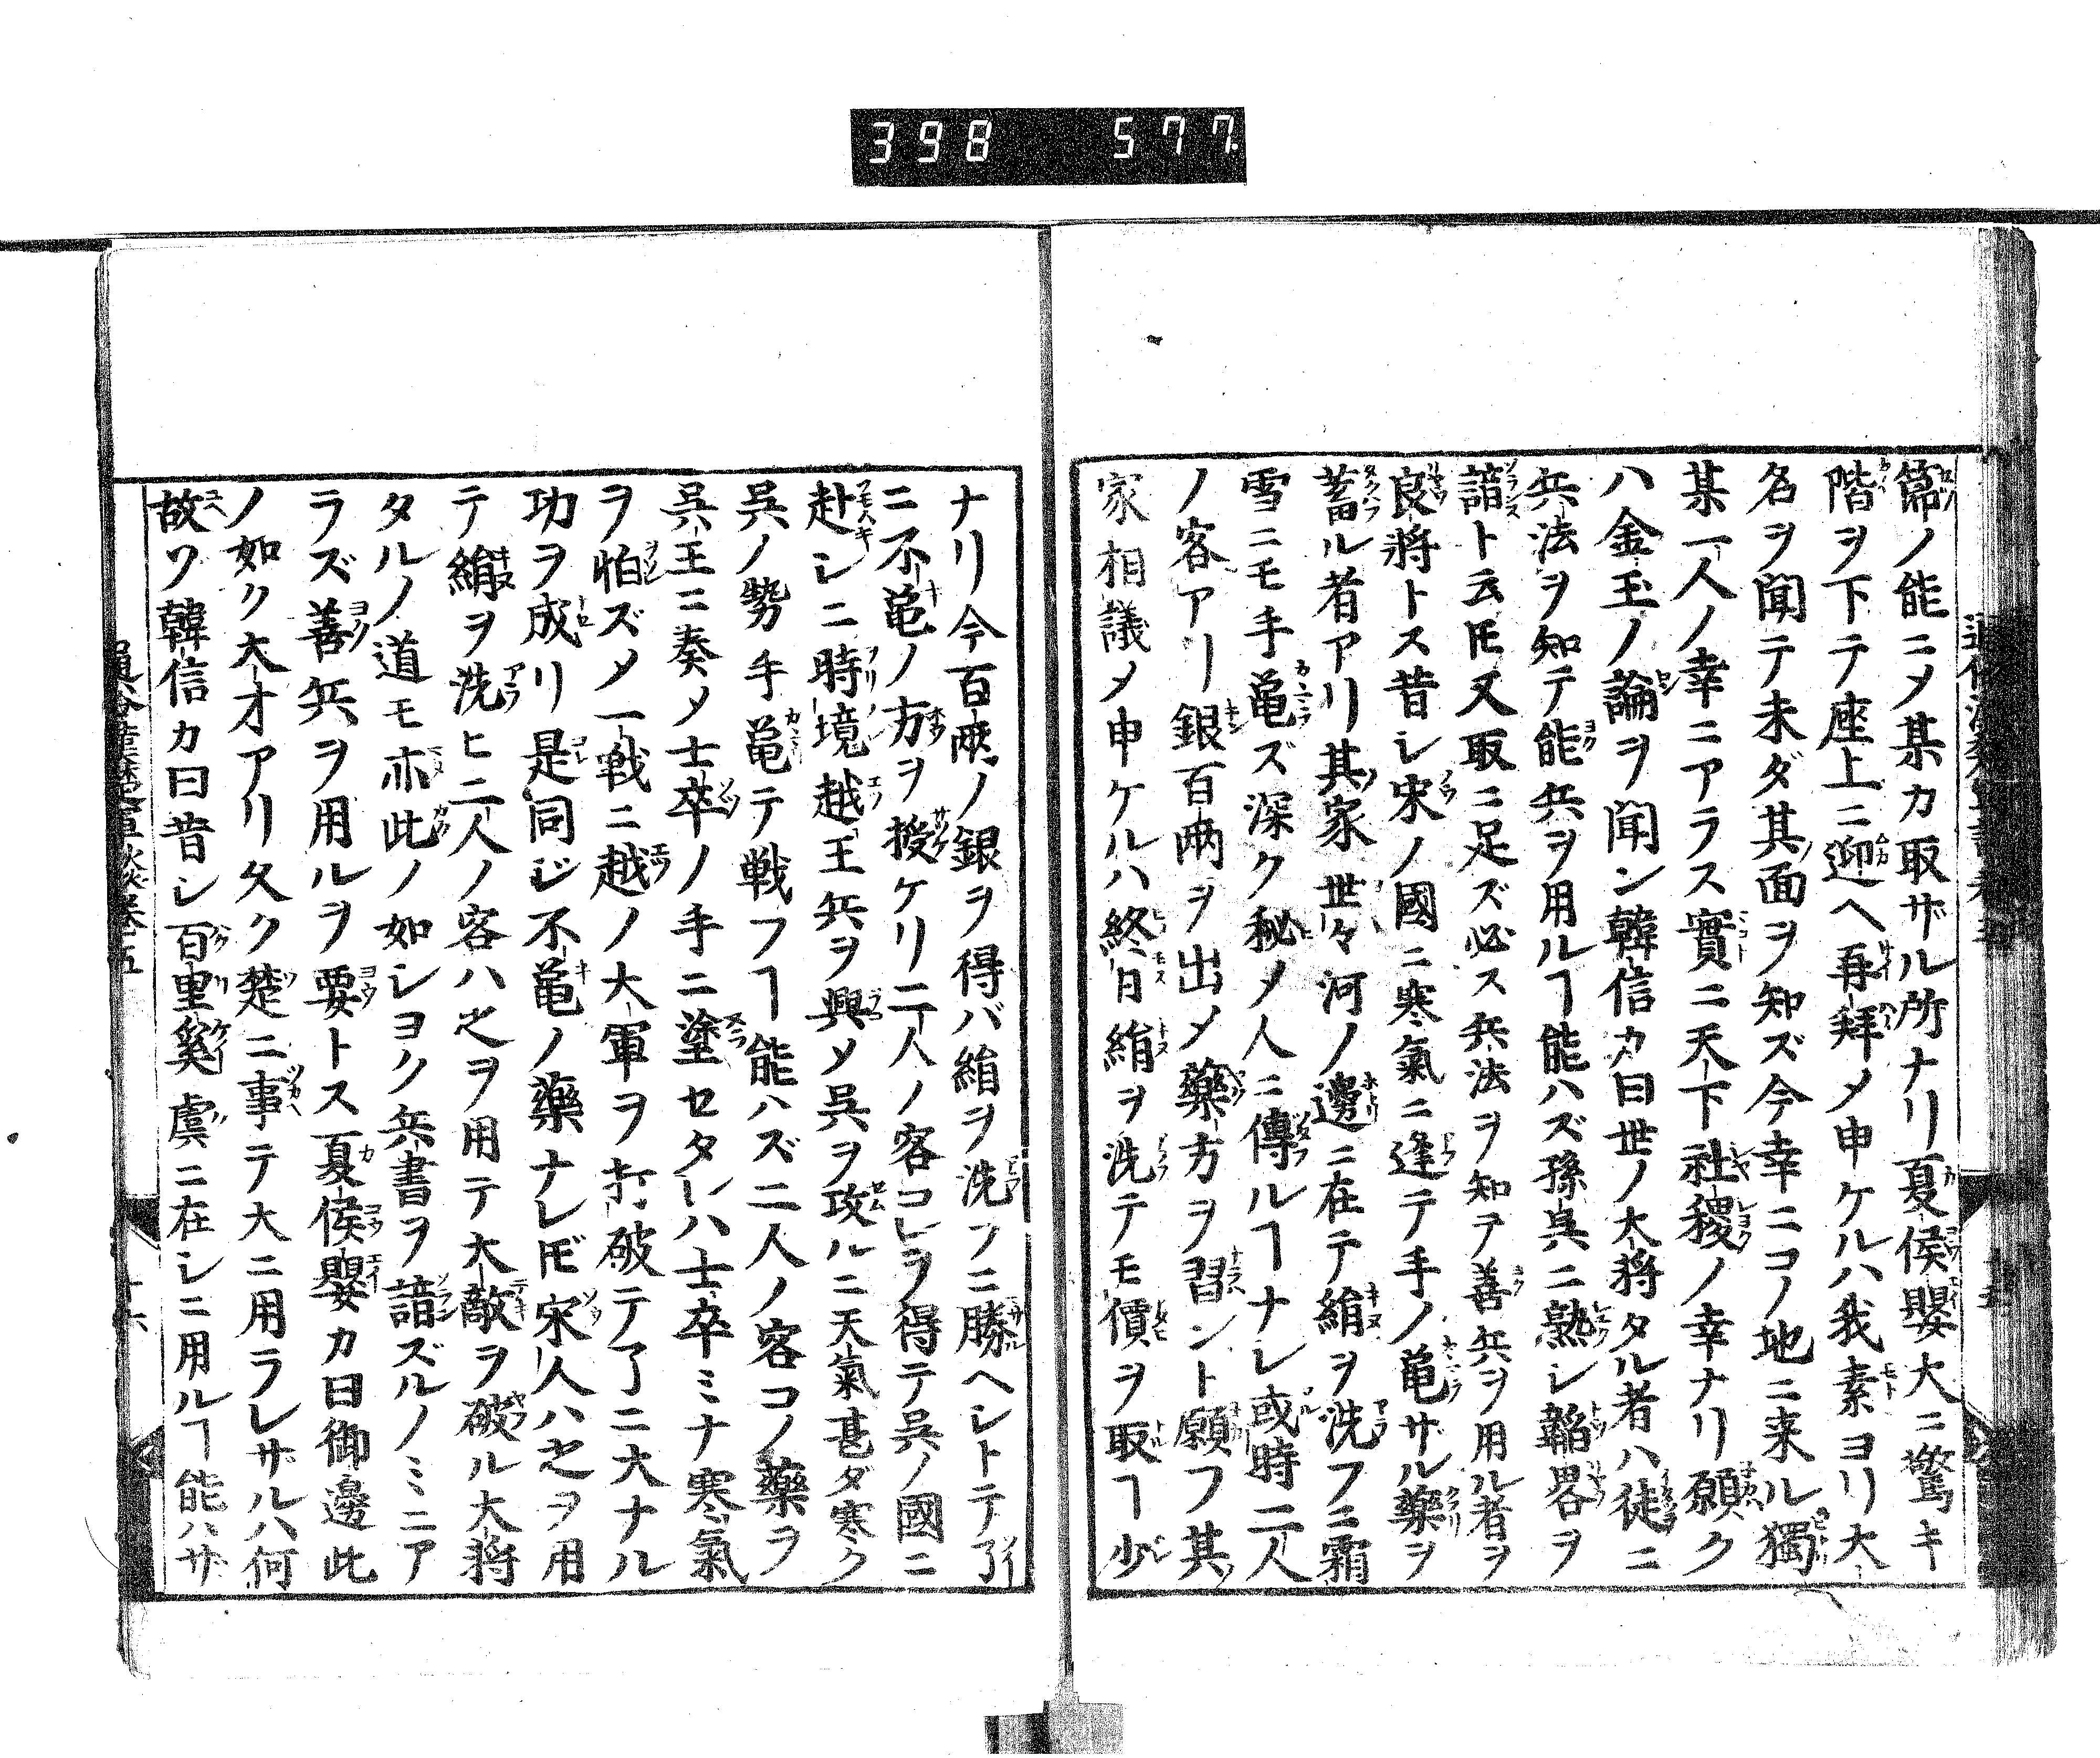 398 577
節ノ能ニメ某カ取ザル所ナリ夏侯嬰大ニ驚キ
階ヲ下テ座上ニ迎ヘ再拜メ申ケルハ我素ヨリ大
名ヲ聞テ未ダ其面ヲ知ズ今幸ニコノ地ニ来ル獨
某一人ノ幸ニアラス實ニ天下社稷ノ幸ナリ願ク
ハ金玉ノ論ヲ聞ン韓信カ曰世ノ大将タル者ハ徒ニ
兵法ヲ知テ能兵ヲ用ルヿ能ハズ孫呉ニ熟シ韜畧ヲ
諳ト云𪜈又取ニ足ズ必ス兵法ヲ知テ善兵ヲ用ル者ヲ
良将トス昔シ宋ノ國ニ寒氣ニ逢テ手ノ亀ザル藥ヲ
蓄ル者アリ其家世々河ノ邊ニ在テ絹ヲ洗フニ霜
雪ニモ手亀ズ深ク秘メ人ニ傳ルヿナシ或時二人
ノ客アリ銀百两ヲ出メ藥方ヲ習ント願フ其
家相議メ申ケルハ終日絹ヲ洗テモ價ヲ取ヿ少
ナリ今百两ノ銀ヲ得バ絹ヲ洗フニ勝ヘシトテ了
ニ不亀ノ方ヲ授ケリ二人ノ客コレヲ得テ呉ノ國ニ
赴シニ時境越王兵ヲ興メ呉ヲ攻ルニ天氣甚ダ寒ク
呉ノ勢手亀テ戦フヿ能ハズ二人ノ客コノ藥ヲ
呉王ニ奏メ士卒ノ手ニ塗セタレハ士卒ミナ寒氣
ヲ怕ズメ一戦ニ越ノ大軍ヲ打破テ了ニ大ナル
功ヲ成リ是同ジ不亀ノ藥ナレ𪜈宋人ハ之ヲ用
テ絹ヲ洗ヒ二人ノ客ハ之ヲ用テ大敵ヲ破ル大将
タルノ道モ亦此ノ如シヨク兵書ヲ諳ズルノミニア
ラズ善兵ヲ用ルヲ要トス夏侯嬰カ曰御邊此
ノ如ク大才アリ久ク楚ニ事テ大ニ用ラレサルハ何
故ソ韓信カ曰昔シ百里奚虞ニ在シニ用ルヿ能ハサ